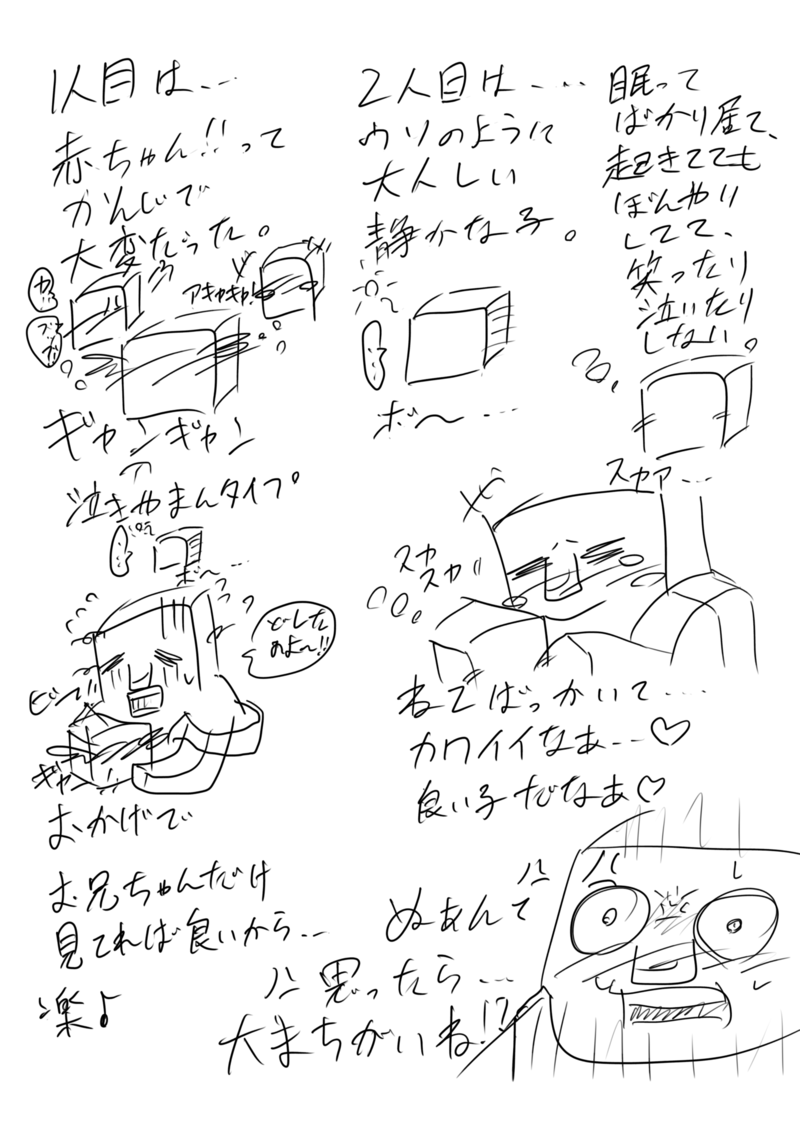 1人目は…
赤ちゃん!!って
かんじで
大変だった。
アキャキャ!
ギャンギャン
泣きやまんタイプ。
2人目は……
ウソのように
大人しい
静かな子。
ボ〜…
眠って
ばかり居て、
起きてても
ぼんやり
してて、
笑ったり
泣いたり
しない。
スカァ…
ボ〜…
どーした
のよ〜!!
ビー!!
ギャー!!
おかげで
お兄ちゃんだけ
見てれば良いから…
楽♪
スカ
スカ
ねてばっかいて……
カワイイなあ…♡
良い子だなあ♡
ぬあんて
思ったら…
大まちがいね!?